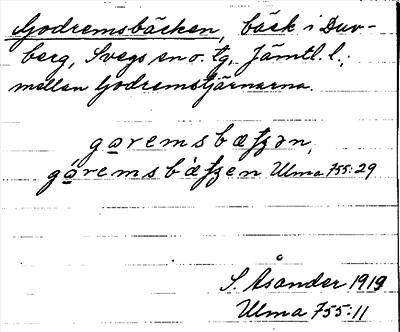 Godremsbäcken, bäck i Duv-
berg, Svegs sn o. tg, Jämtl. l.;
mellan Godremstjärnarna.
garemsbæʈʂən,
gáremsb̀æʈʂen Ulma 755:29
S. Åsander 1919
Ulma 755:11